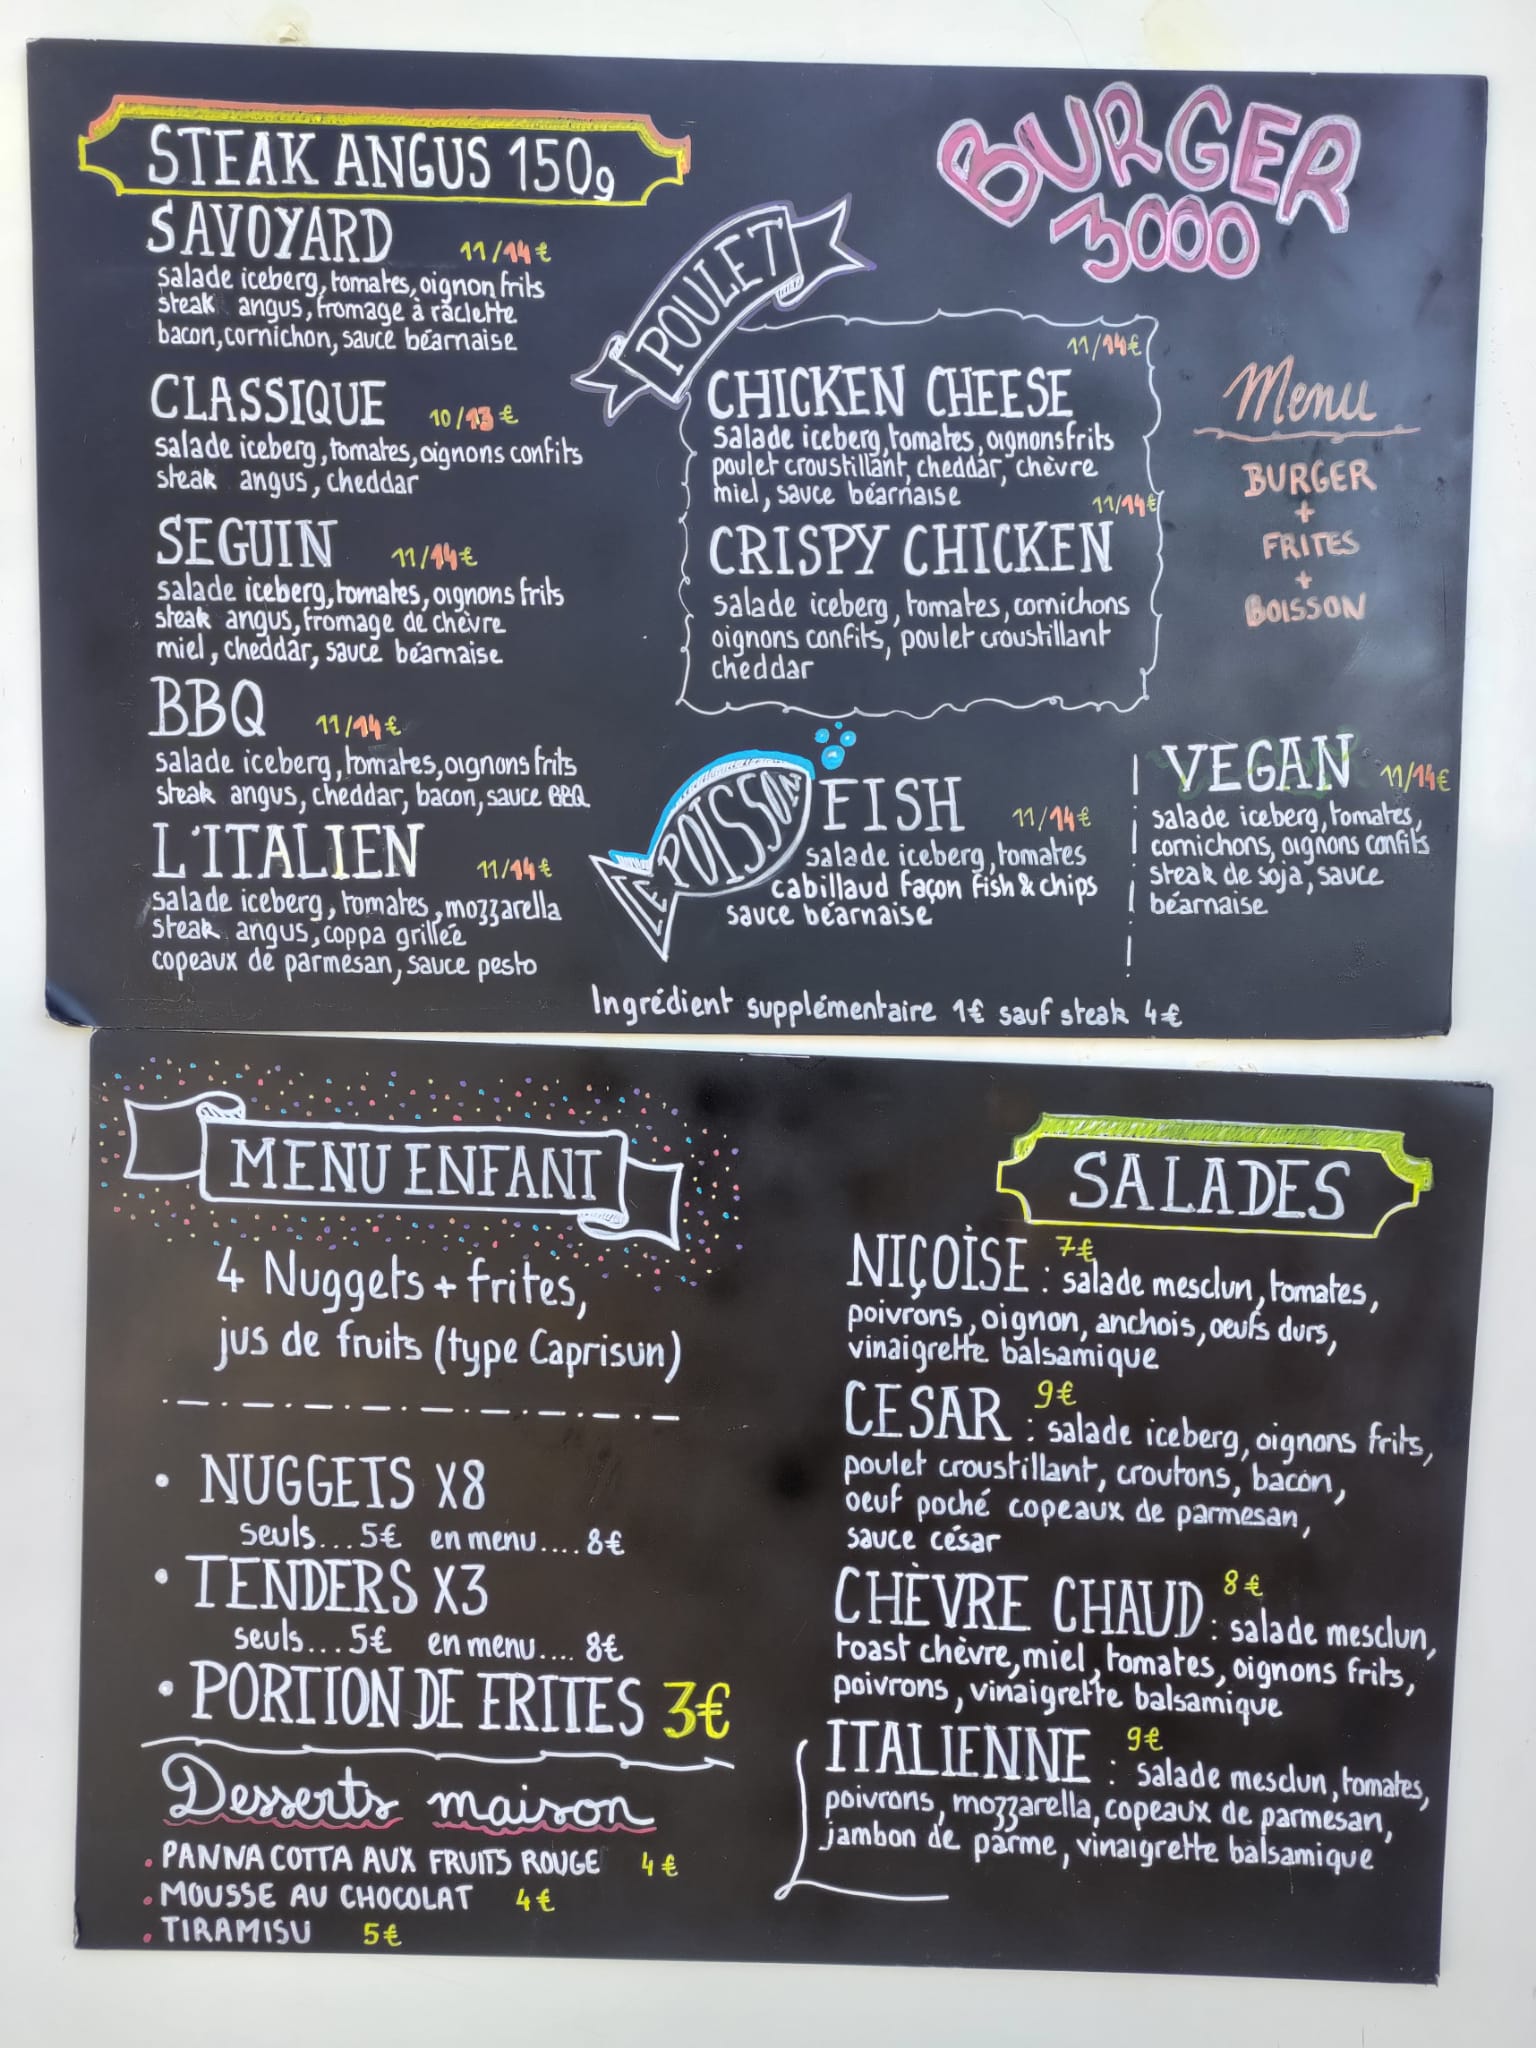 BURGER
3000
STEAK ANGUS 150g
SAVOYARD 11/14€
salade iceberg, tomates, oignon frits
steak angus, fromage à raclette
bacon, cornichon, sauce béarnaise
CLASSIQUE 10/13€
salade iceberg, tomates, oignons confits
steak angus, cheddar
SEGUIN 11/14€
salade iceberg, tomates, oignons frits
steak angus, fromage de chèvre
miel, cheddar, sauce béarnaise
BBQ 11/14€
salade iceberg, tomates, oignons frits
steak angus, cheddar, bacon, sauce BBQ
L'ITALIEN 11/14€
salade iceberg, tomates, mozzarella
steak angus, coppa grillée
copeaux de parmesan, sauce pesto
POULET
11/14€
CHICKEN CHEESE
salade iceberg, tomates, oignons frits
poulet croustillant, cheddar, chèvre
miel, sauce béarnaise
11/14€
CRISPY CHICKEN
salade iceberg, tomates, cornichons
oignons confits, poulet croustillant
cheddar
Menu
BURGER
+
FRITES
+
BOISSON
LE POISSON
FISH 11/14€
salade iceberg, tomates
cabillaud façon fish & chips
sauce béarnaise
VEGAN 11/14€
salade iceberg, tomates,
cornichons, oignons confits
steak de soja, sauce
béarnaise
Ingrédient supplémentaire 1€ sauf steak 4€
MENU ENFANT
4 Nuggets + frites,
jus de fruits (type Caprisun)
• NUGGETS X8
seuls...5€ en menu....8€
• TENDERS X3
seuls...5€ en menu.... 8€
• PORTION DE FRITES 3€
Desserts maison
• PANNA COTTA AUX FRUITS ROUGE 4€
• MOUSSE AU CHOCOLAT 4€
• TIRAMISU 5€
SALADES
NIÇOISE 7€ : salade mesclun, tomates,
poivrons, oignon, anchois, oeufs durs,
vinaigrette balsamique
CESAR 9€ : salade iceberg, oignons frits,
poulet croustillant, croutons, bacon,
oeuf poché copeaux de parmesan,
sauce césar
CHÈVRE CHAUD 8€ : salade mesclun,
toast chèvre, miel, tomates, oignons frits,
poivrons, vinaigrette balsamique
ITALIENNE 9€ : salade mesclun, tomates,
poivrons, mozzarella, copeaux de parmesan,
jambon de parme, vinaigrette balsamique